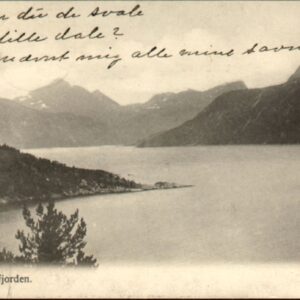 du de svale
lille dale?
mig alle mine savn
fjorden.